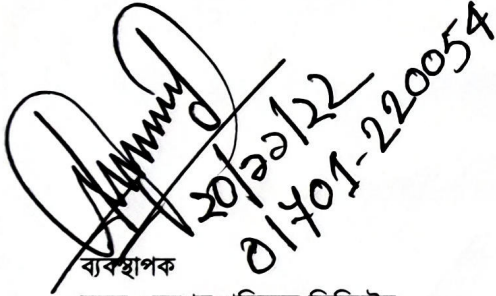 ২০/১১/২২
01701-220054
ব্যবস্থাপক